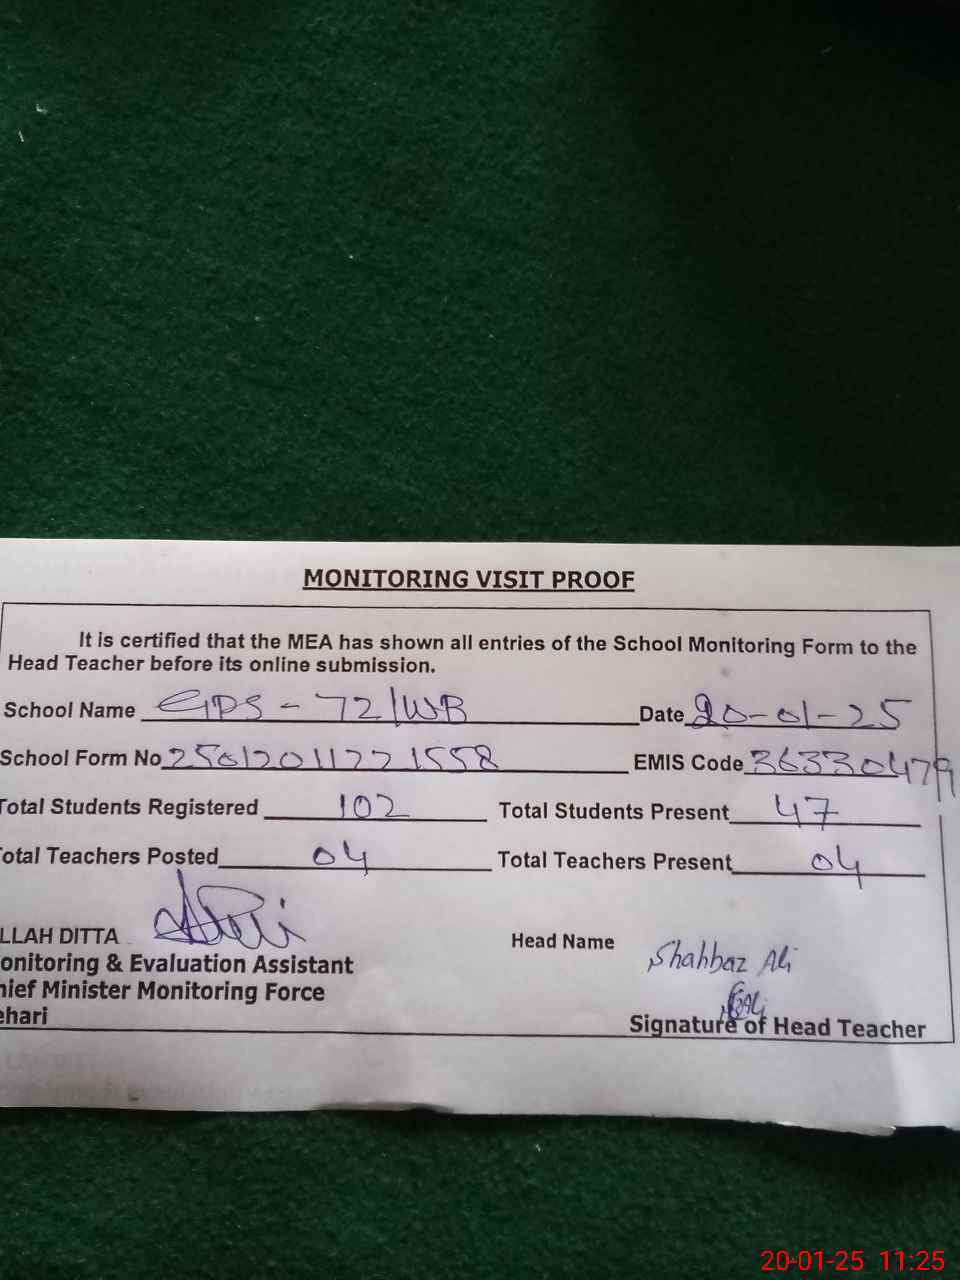 MONITORING VISIT PROOF
It is certified that the MEA has shown all entries of the School Monitoring Form to the
Head Teacher before its online submission.
School Name GPS - 72/WB Date 20-01-25
School Form No 2501201122 1558 EMIS Code 36330479
Total Students Registered 102 Total Students Present 47
Total Teachers Posted 04 Total Teachers Present 04
LLAH DITTA Head Name Shahbaz Ali
onitoring & Evaluation Assistant
hief Minister Monitoring Force
ehari Signature of Head Teacher
20-01-25 11:25